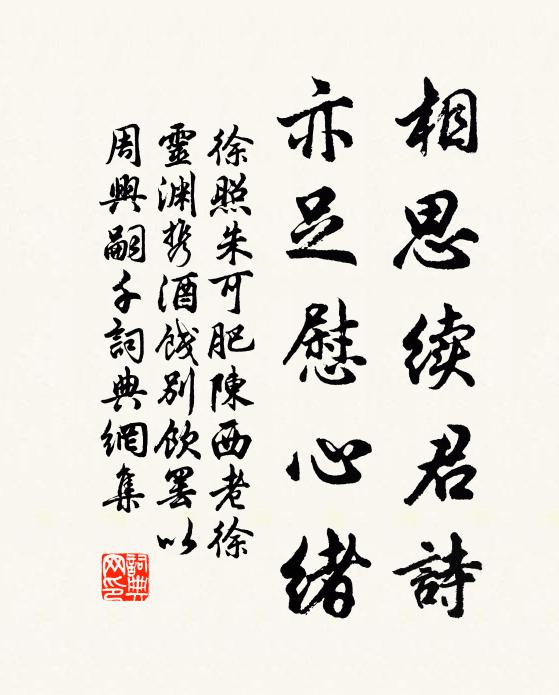 相思續君詩
亦足慰心緒
徐照朱可肥陳西老徐
靈淵携酒餞別飲罷以
周興嗣千詞典網集
詞典網印